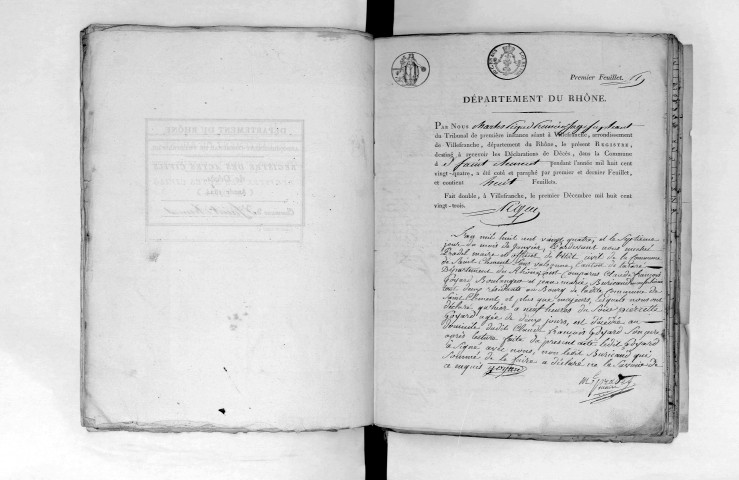 Premier Feuillet.
DÉPARTEMENT DU RHÔNE.
PAR NOUS Juge Suppléant
du Tribunal de première instance séant à Villefranche, arrondissement
de Villefranche, département du Rhône, le présent REGISTRE,
destiné à recevoir les Déclarations de Décès, dans la Commune
d Saint Clément pendant l'année mil huit cent
vingt-quatre, a été coté et paraphé par premier et dernier Feuillet,
et contient huit Feuillets.
Fait double, à Villefranche, le premier Décembre mil huit cent
vingt-trois.
L'an mil huit cent vingt quatre, et le Septieme
jour du mois de janvier, pardevant nous
Pradel maire et officier de l'état civil de la Commune
de Saint Clément sous valsonne, Canton de tarare
Département du Rhône, sont Comparus Claude françois
Goyard Boulanger et jean marie Buricand
tout deux residants au Bourg de ladite Commune de
Saint Clément, et plus que majeurs, lesquels nous ont
déclaré qu'hier a neuf heures du Soir
Goyard agée de deux jours, est décédée au
domicile dudit Claude françois Goyard Son père
après lecture faite du present acte ledit Goyard
a Signé avec nous, non ledit Buricand qui
Sommé de le faire a déclaré ne la Savoir de
ce enquis Goyard
maire